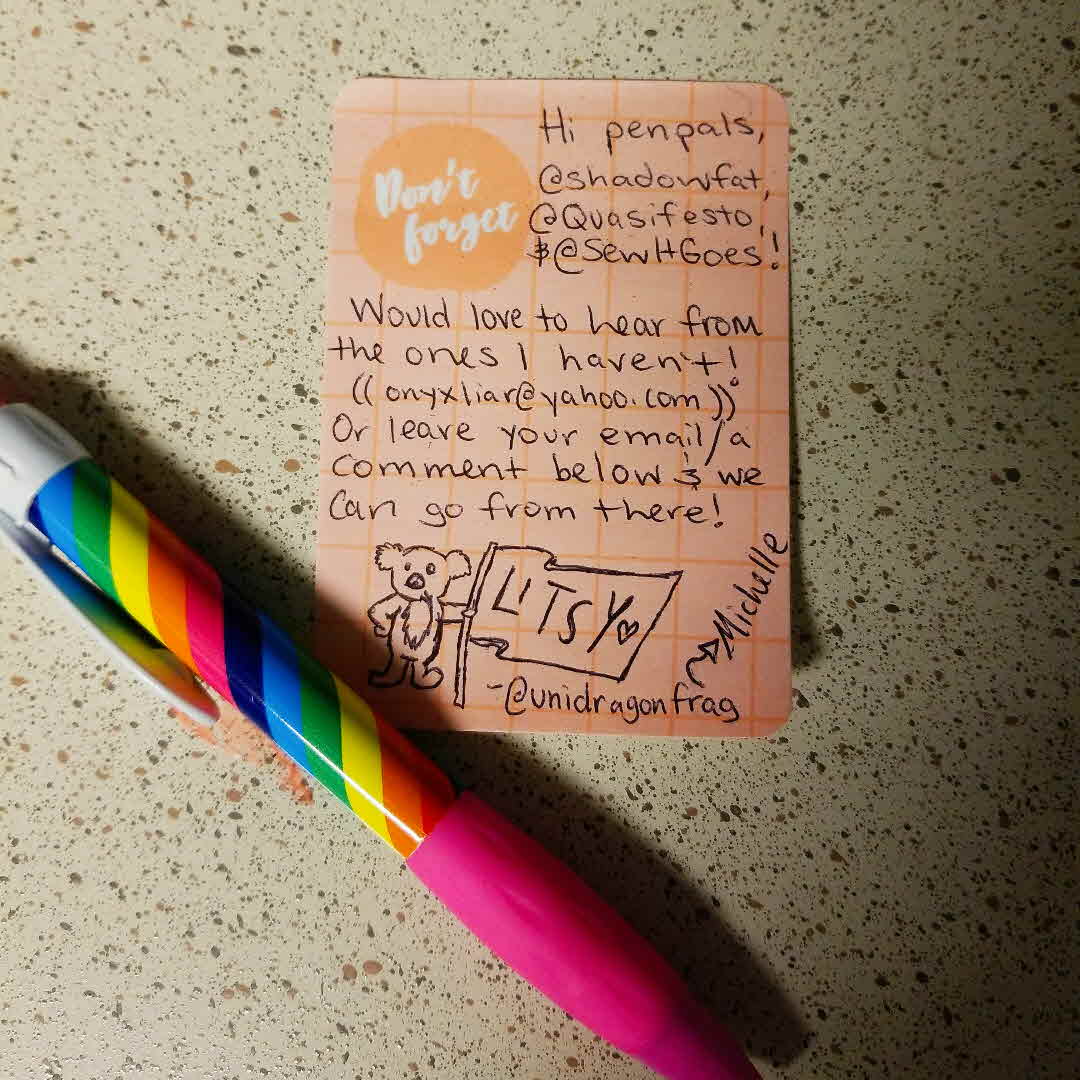 Don't
forget
Hi penpals,
@shadowfat,
@Quasifesto,
& @SewItGoes!
Would love to hear from
the ones I haven't!
((onyxliar@yahoo.com))
Or leave your email/a
comment below & we
can go from there!
LITSY
Michelle
-@unidragonfrag